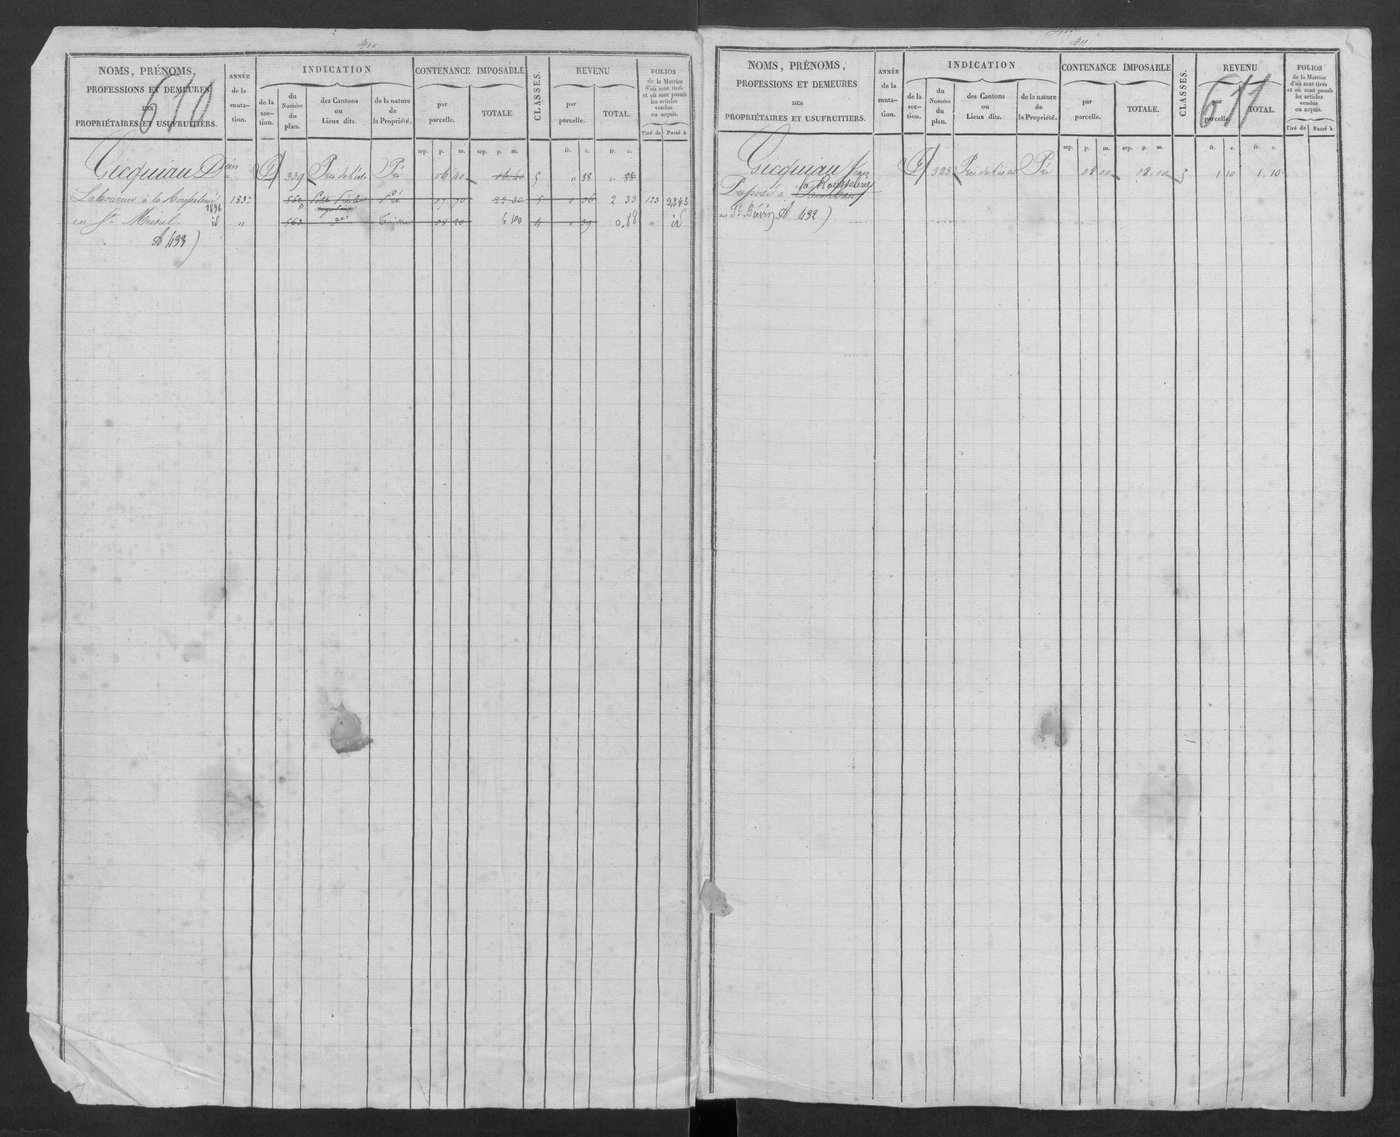 410
610
NOMS, PRÉNOMS,
PROFESSIONS ET DEMEURES
DES
PROPRIÉTAIRES ET USUFRUITIERS.
ANNÉE
de la
muta-
tion.
INDICATION
de la
sec-
tion.
du
Numéro
du
plan.
des Cantons
ou
Lieux dits.
de la nature
de
la Propriété.
CONTENANCE IMPOSABLE
par
parcelle.
TOTALE.
CLASSES.
REVENU
par
parcelle.
TOTAL.
FOLIOS
de la Matrice
d'où sont tirés
et où sont passés
les articles
vendus
ou acquis.
Tiré de Passé à
arp. p. m. arp. p. m. fr. c. fr. c.
Gicquiau D 339 Pré Pré 06 40 06 40 5 " 88 " 88
Laboureur à la 183 562 Pré 37 70 22 30 5 " 36 2 33 123 2243
en St 1836 id " 563 d° 04 20 4 " 39 0.88 " id
A 433)
411
611
NOMS, PRÉNOMS,
PROFESSIONS ET DEMEURES
DES
PROPRIÉTAIRES ET USUFRUITIERS.
ANNÉE
de la
muta-
tion.
INDICATION
de la
sec-
tion.
du
Numéro
du
plan.
des Cantons
ou
Lieux dits.
de la nature
de
la Propriété.
CONTENANCE IMPOSABLE
par
parcelle.
TOTALE.
CLASSES.
REVENU
par
parcelle.
TOTAL.
FOLIOS
de la Matrice
d'où sont tirés
et où sont passés
les articles
vendus
ou acquis.
Tiré de Passé à
arp. p. m. arp. p. m. fr. c. fr. c.
Gicquiau 323 Pré Pré 08 00 08 00 5 1 10 1.10
Préposé à la
en St Brévin A 432)